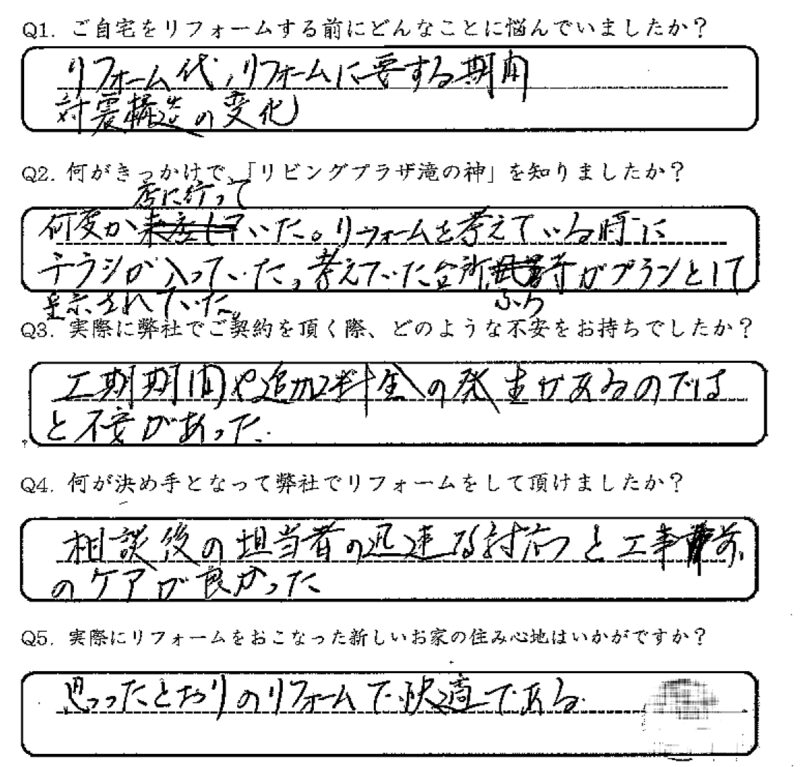 Q1. ご自宅をリフォームする前にどんなことに悩んでいましたか？
リフォーム代、リフォームに要する期間
対震構造の変化
Q2. 何がきっかけで、「リビングプラザ滝の神」を知りましたか？
店に行って
何度か来店していた。リフォームを考えている時に
チラシが入っていた。考えていた台所、等がプランとして
ふろ
呈示されていた。
Q3. 実際に弊社でご契約を頂く際、どのような不安をお持ちでしたか？
工期期間や追加料金の発生があるのでは
と不安があった。
Q4. 何が決め手となって弊社でリフォームをして頂けましたか？
相談後の担当者の迅速な対応と工事前
のケアが良かった
Q5. 実際にリフォームをおこなった新しいお家の住み心地はいかがですか？
思ったとおりのリフォームで快適である。